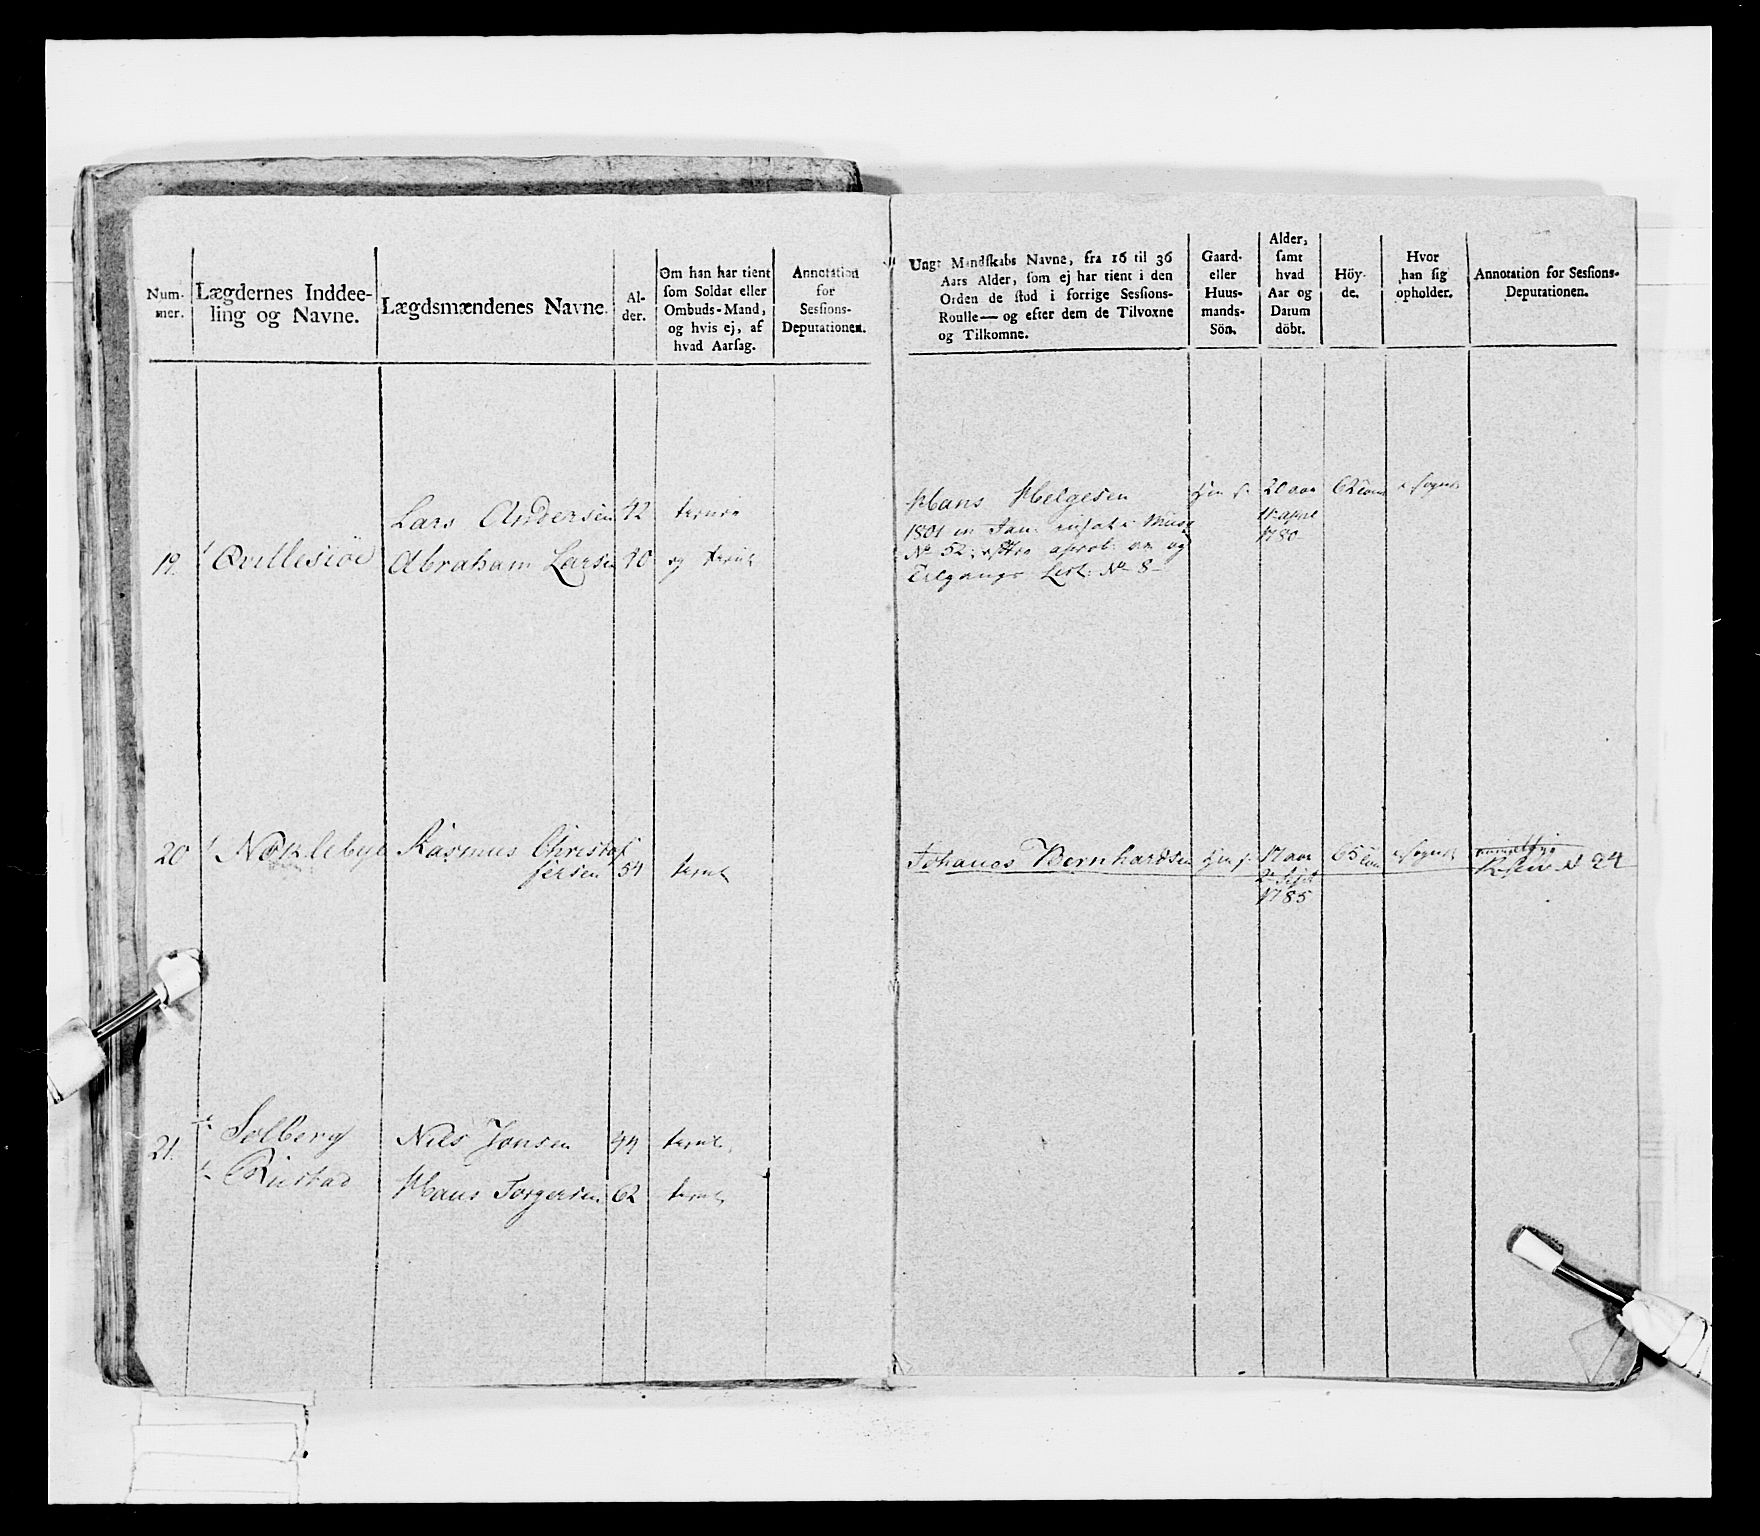 Num-
mer.
Lægdernes Inddee-
ling og Navne.
Lægdsmændenes Navne.
Al-
der.
Om han har tient
som Soldat eller
Ombuds-Mand,
og hvis ej, af
hvad Aarsag.
Annotation
for
Sessions-
Deputationen.
Lars Andersen 42
19. 1 Qvillesiöe Abraham Larsen 40 og tient
20 1 Nöklebye Rasmus Christof
fersen 54 tient
21. Solberg Nils Jonsen 44 tient
Riustad Hans Torgersen 62 tient
Ungt Mandskabs Navne, fra 16 til 36
Aars Alder, som ej har tient i den
Orden de stod i forrige Sessions-
Roulle— og efter dem de Tilvoxne
og Tilkomne.
Gaard-
eller
Huus-
mands-
Sön.
Alder,
samt
hvad
Aar og
Datum
döbt.
Höy-
de.
Hvor
han sig
opholder.
Annotation for Sessions-
Deputationen.
Hans Helgesen 20 aar 62 Tom i Sognet
1801 Jan:
1780
No 52
Tilgangs List: No 8
Johanes Bernhardsen 17 aar 65 Tom i Sognet
24
2 Sept
1785